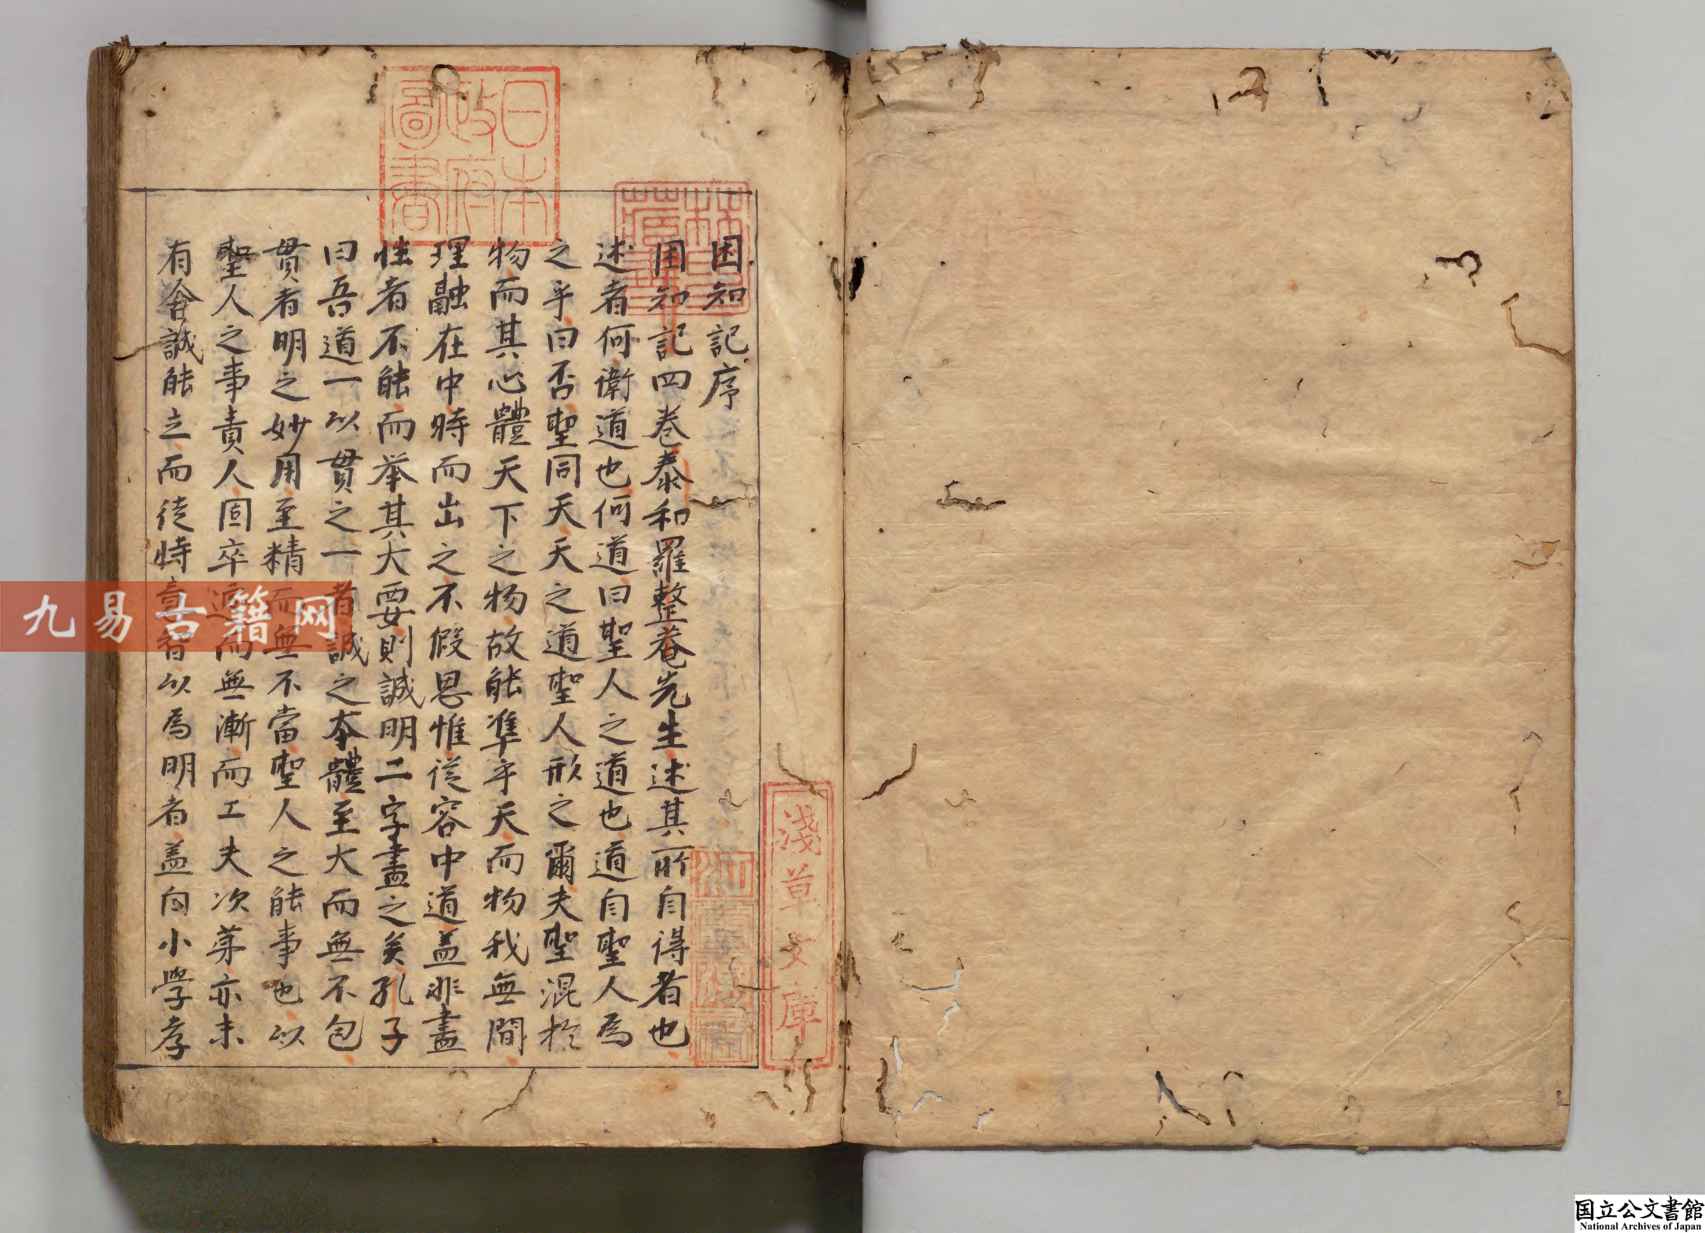 困知記序
困知記四卷泰和羅整菴先生述其所自得者也
述者何衛道也何道曰聖人之道也道自聖人爲
之乎曰否聖同天天之道聖人形之爾夫聖混於
物而其心體天下之物故能準乎天而物我無間
理融在中時而出之不假思惟從容中道盖非盡
性者不能而举其大要則誠明二字盡之矣孔子
曰吾道一以貫之一者誠之本體至大而無不包
贯者明之妙用至精而無不當聖人之能事也以
聖人之事責人固卒遽而無漸而工夫次第亦未
有舍誠能立而徒恃意智以爲明者盖自小學孝
日本政府圖書
林氏藏書
淺草文庫
九易古籍网
国立公文書館
National Archives of Japan